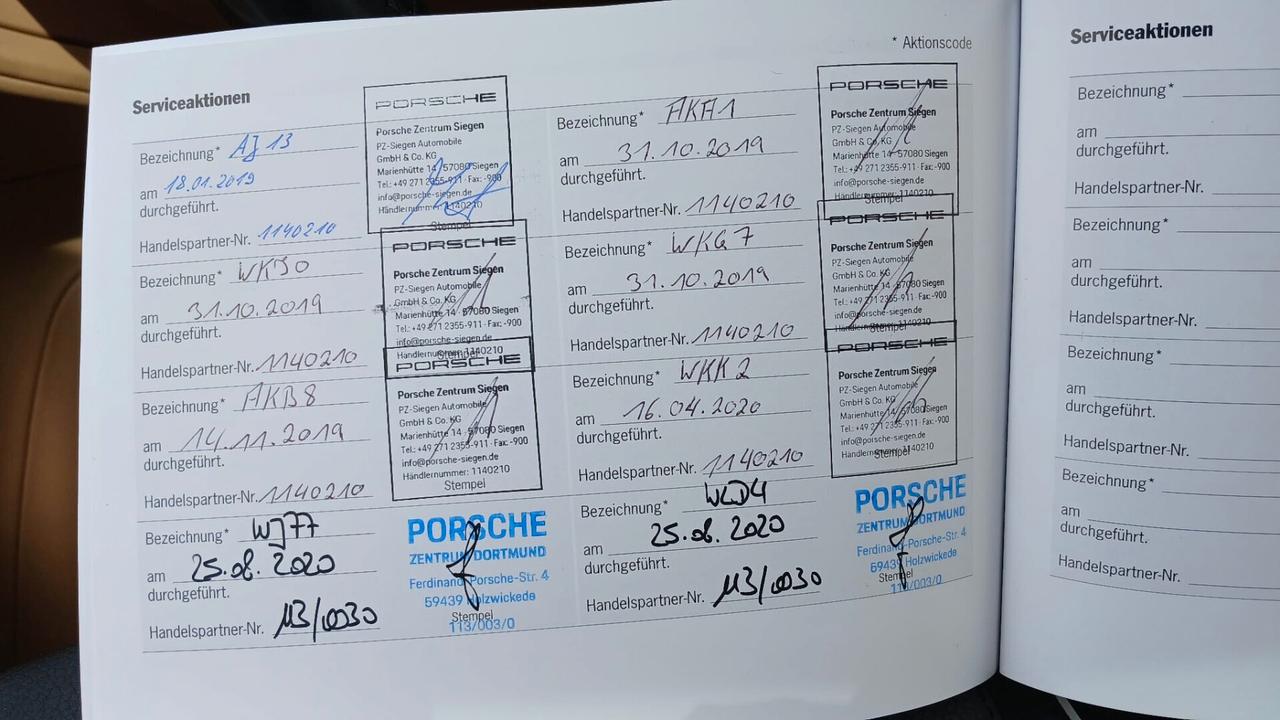 Serviceaktionen
* Aktionscode
Bezeichnung* AJ 13
am 18.01.2019
durchgeführt.
Handelspartner-Nr. 1140210
PORSCHE
Porsche Zentrum Siegen
PZ-Siegen Automobile
GmbH & Co. KG
Marienhütte 14 · 57080 Siegen
Tel.: +49 271 2355-911 · Fax: -900
info@porsche-siegen.de
Händlernummer: 1140210
Stempel
Bezeichnung* AKA1
am 31.10.2019
durchgeführt.
Handelspartner-Nr. 1140210
PORSCHE
Porsche Zentrum Siegen
PZ-Siegen Automobile
GmbH & Co. KG
Marienhütte 14 · 57080 Siegen
Tel.: +49 271 2355-911 · Fax: -900
info@porsche-siegen.de
Händlernummer: 1140210
Stempel
Bezeichnung*
am 31.10.2019
durchgeführt.
Handelspartner-Nr. 1140210
PORSCHE
Porsche Zentrum Siegen
PZ-Siegen Automobile
GmbH & Co. KG
Marienhütte 14 · 57080 Siegen
Tel.: +49 271 2355-911 · Fax: -900
info@porsche-siegen.de
Händlernummer: 1140210
Stempel
Bezeichnung* WKG7
am 31.10.2019
durchgeführt.
Handelspartner-Nr. 1140210
PORSCHE
Porsche Zentrum Siegen
PZ-Siegen Automobile
GmbH & Co. KG
Marienhütte 14 · 57080 Siegen
Tel.: +49 271 2355-911 · Fax: -900
info@porsche-siegen.de
Stempel
Bezeichnung* AKB8
am 14.11.2019
durchgeführt.
Handelspartner-Nr. 1140210
PORSCHE
Porsche Zentrum Siegen
PZ-Siegen Automobile
GmbH & Co. KG
Marienhütte 14 · 57080 Siegen
Tel.: +49 271 2355-911 · Fax: -900
info@porsche-siegen.de
Händlernummer: 1140210
Stempel
Bezeichnung* WKK2
am 16.04.2020
durchgeführt.
Handelspartner-Nr. 1140210
PORSCHE
Porsche Zentrum Siegen
PZ-Siegen Automobile
GmbH & Co. KG
Marienhütte 14 · 57080 Siegen
Tel.: +49 271 2355-911 · Fax: -900
info@porsche-siegen.de
Händlernummer: 1140210
Stempel
Bezeichnung* WJ77
am 25.08.2020
durchgeführt.
Handelspartner-Nr. 113/0030
PORSCHE
ZENTRUM DORTMUND
Ferdinand-Porsche-Str. 4
59439 Holzwickede
Stempel
113/003/0
Bezeichnung* WLD4
am 25.08.2020
durchgeführt.
Handelspartner-Nr. 113/0030
PORSCHE
ZENTRUM DORTMUND
Ferdinand-Porsche-Str. 4
59439 Holzwickede
Stempel
113/003/0
Serviceaktionen
Bezeichnung*
am
durchgeführt.
Handelspartner-Nr.
Bezeichnung*
am
durchgeführt.
Handelspartner-Nr.
Bezeichnung*
am
durchgeführt.
Handelspartner-Nr.
Bezeichnung*
am
durchgeführt.
Handelspartner-Nr.